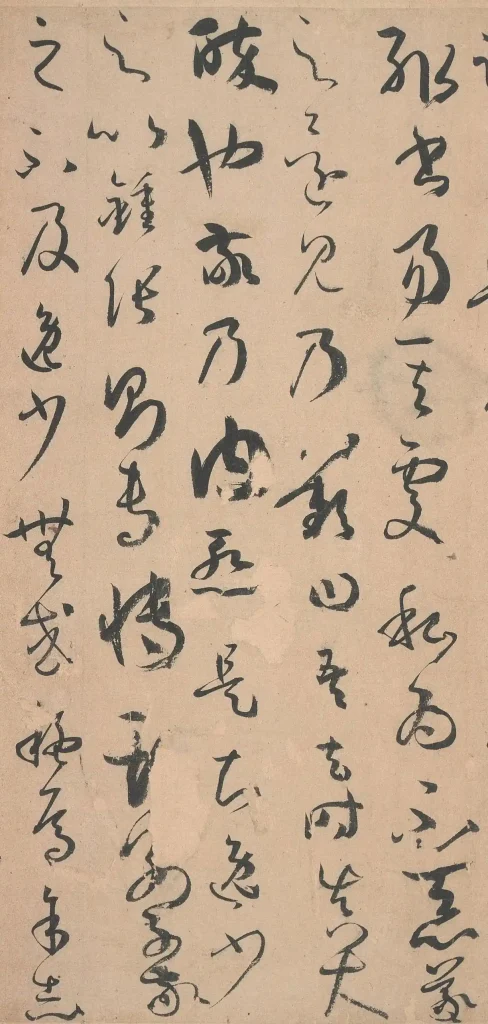 輒書易其處私為不惡羲
之還見乃歎曰吾去時真大
醉也敬乃內慚是知逸少
之比鍾張則專博斯別子敬
之不及逸少無或疑焉余志